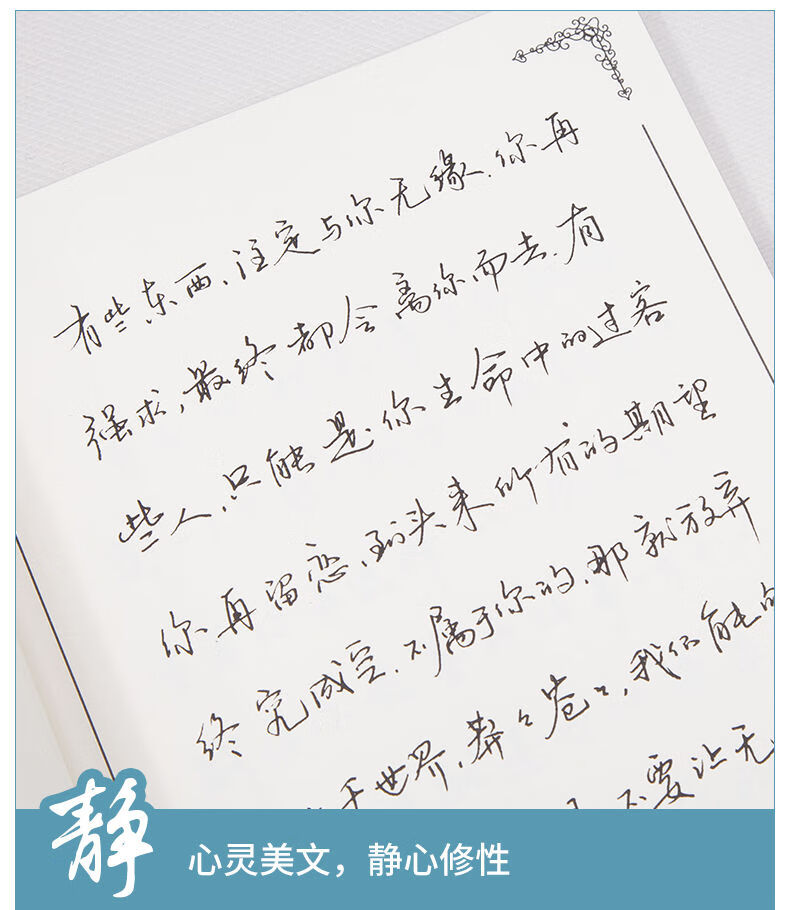 有些东西，注定与你无缘，你再
强求，最终都会离你而去，有
些人，只能是你生命中的过客
你再留恋，到头来所有的期望
终究成空，不属于你的，那就放弃
于世界，莽莽苍苍，我们能
不要让无
静
心灵美文，静心修性